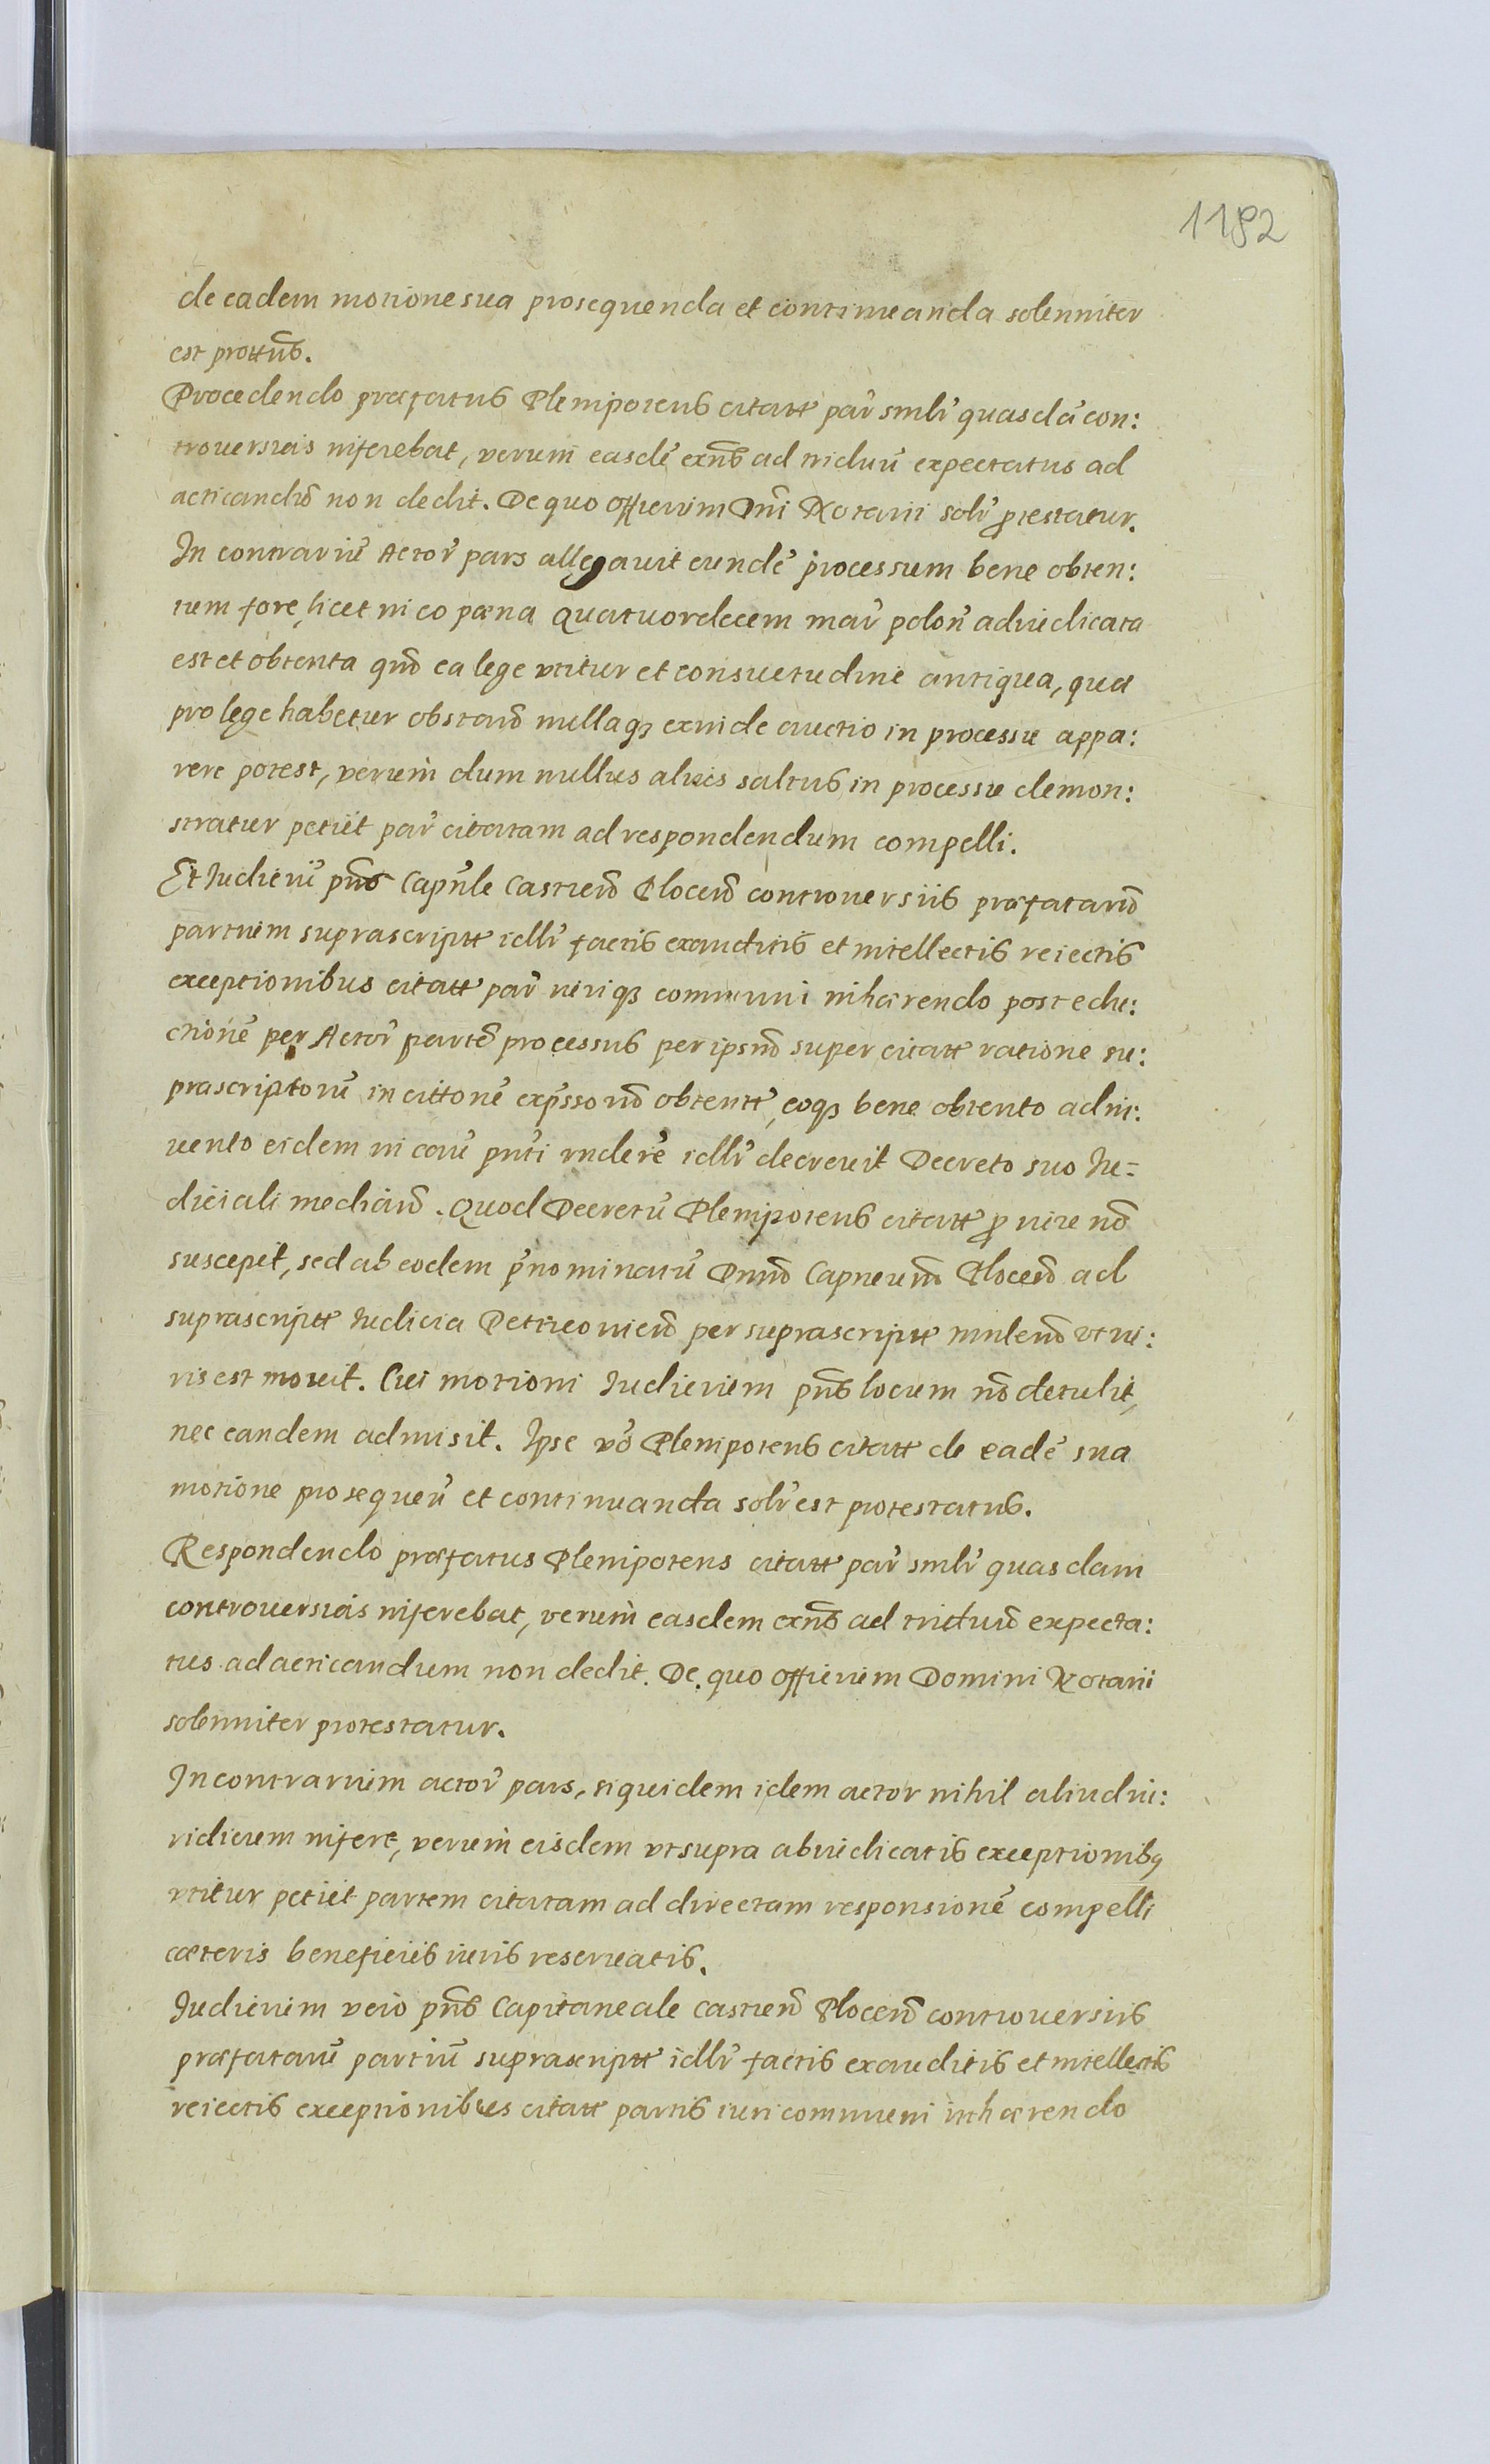 1192
de eadem motione sua prosequenda et continuanda solenniter
est prottūs.
Procedendo præfatus Plenipotens citatt par̃ smlr̃ quasdã con:
trouersias inferebat, verum easdẽ exñs ad triduũ expectatus ad
acticandũ non dedit. De quo officium Dñi Notarii solr̃ protestatur.
In contrariũ Actor̃ pars allegauit eundẽ processum bene obten:
tum fore, licet in eo pœna quatuordecem mar̃ polon̄ adiudicata
est et obtenta qñd ea lege vtitur et consuetudine antiqua, qua
pro lege habetur obstan̄ nullaqȝ exinde auctio in processu appa:
rere potest, verum dum nullus alius saltus in processu demon:
stratur petiit par̃ citatam ad respondendum compelli.
Et Iudiciũ pñs Capñle Castren̄ Plocen̄ controuersiis præfatarũ
partium suprascriptt idlr̃ factis exauditis et intellectis reiectis
exceptionibus citatt par̃ iuriqȝ communi inhærendo post edu:
ctionẽ per Actor̃ partẽ processus per ipsũ super citatt ratione su:
prascriptorũ in cittonẽ exp̃ssorũ obtentt, eoqȝ bene obtento adin:
uento eidem in caũ pñti rndẽre idlr̃ decreuit Decreto suo Iu-
diciali median̄. Quod Decretũ Plenipotens citatt pro iure nõ
suscepit, sed ab eodem p̃nominatũ Dnũ Capneum Plocen̄ ad
suprascriptt Iudicia Petricouien̄ per suprascriptt nmlen̄ vt iu:
ris est mouit. Cui motioni Iudicium pñs locum nõ detulit,
nec eandem admisit. Ipse võ Plenipotens citatt de eadẽ sua
motione prosequen̄ et continuanda solr̃ est protestatus.
Respondendo præfatus Plenipotens citatt par̃ smlr̃ quasdam
controuersias inferebat, verum easdem exñs ad triduũ expecta:
tus ad acticandum non dedit. De quo officium Domini Notarii
solenniter protestatur.
In contrarium actor̃ pars, siquidem idem actor nihil aliud iu:
ridicum infert, verum eisdem vt supra abiudicatis exceptionibȝ
vtitur petiit partem citatam ad directam responsionẽ compelli
cæteris beneficiis iuris reseruatis.
Iudicium vero pñs Capitaneale castren̄ Plocen̄ controuersiis
præfatarũ partiũ suprascriptt idlr̃ factis exauditis et intellectis
reiectis exceptionibus citatt partis iuri communi inhærendo